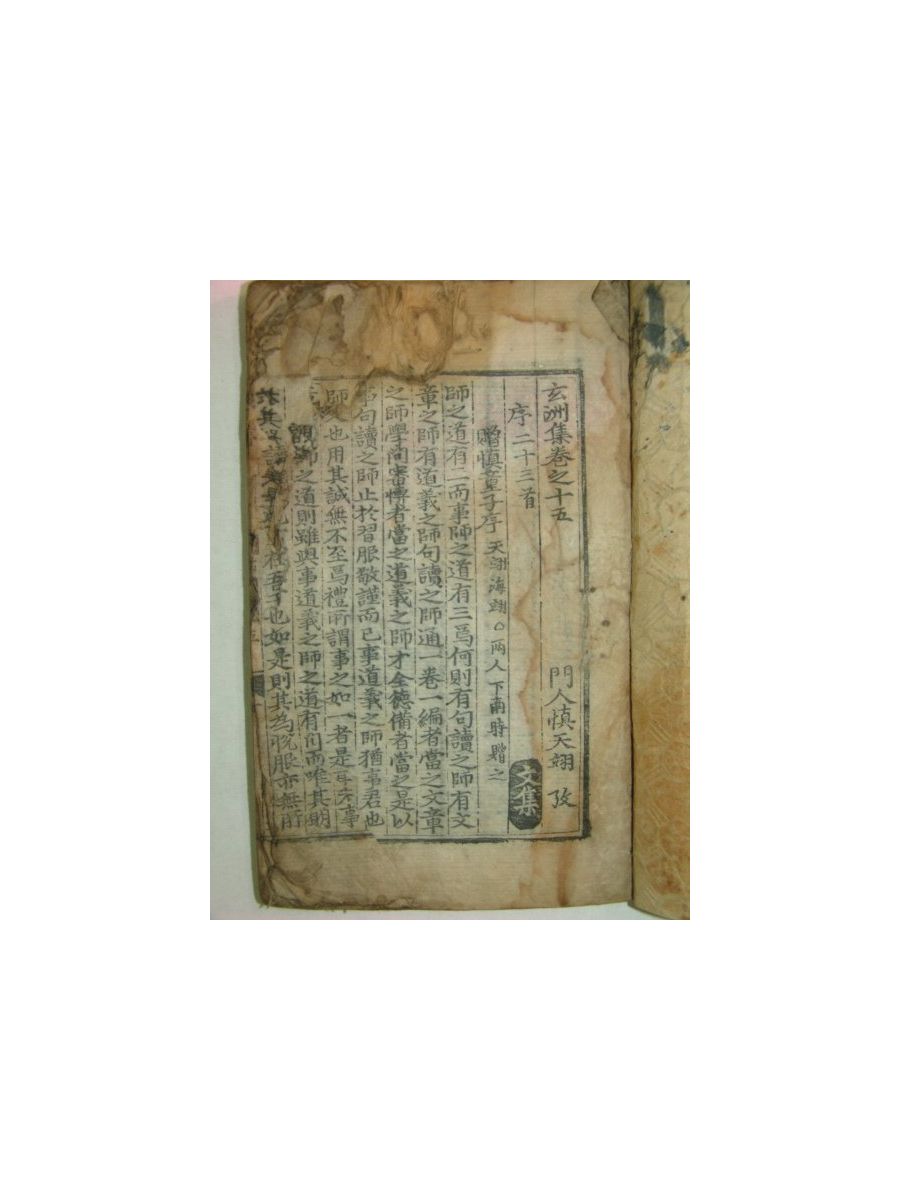 玄洲集卷之十五
門人愼天翊 攷
序二十三首
文集
贈愼童子序 天翊海翊○兩人下南時贈之
師之道有二而事師之道有三焉何則有句讀之師有文
章之師有道義之師句讀之師通一卷一編者當之文章
之師學問審博者當之道義之師才全德備者當之是以
事句讀之師止於習服敬謹而已事道義之師猶事君也
師父也用其誠無不至焉禮所謂事之如一者是耳夫事
師之道則雖與事道義之師之道有間而唯其
在吾子也如是則其爲悅服亦無所